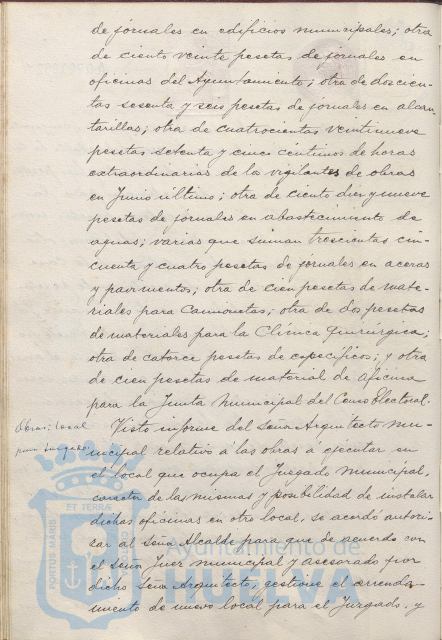 de jornales en edificios municipales; otra
de ciento veinte pesetas de jornales en
oficinas del Ayuntamiento; otra de doscien-
tas sesenta y seis pesetas de jornales en alcan-
tarillas; otra de cuatrocientas veintinueve
pesetas setenta y cinco céntimos de horas
extraordinarias de los vigilantes de obras
en Junio último; otra de ciento diez y nueve
pesetas de jornales en abastecimiento de
aguas; varias que suman trescientas cin-
cuenta y cuatro pesetas de jornales en aceras
y pavimentos; otra de cien pesetas de mate-
riales para Camionetas; otra de dos pesetas
de materiales para la Clínica Quirúrgica;
otra de catorce pesetas de específicos; y otra
de cien pesetas de material de oficina
para la Junta Municipal del Censo Electoral.
Obras: local
para Juzgado
Visto informe del señor Arquitecto mu-
nicipal relativo á las obras á ejecutar en
el local que ocupa el Juzgado municipal,
caracter de las mismas y posibilidad de instalar
dichas oficinas en otro local, se acordó autori-
zar al señor Alcalde para que de acuerdo con
el señor Juez municipal y asesorado por
dicho señor Arquitecto, gestione el arrenda-
miento de nuevo local para el Juzgado, y
ET TERRÆ
PORTUS MARIS
Ayuntamiento de
HUELVA